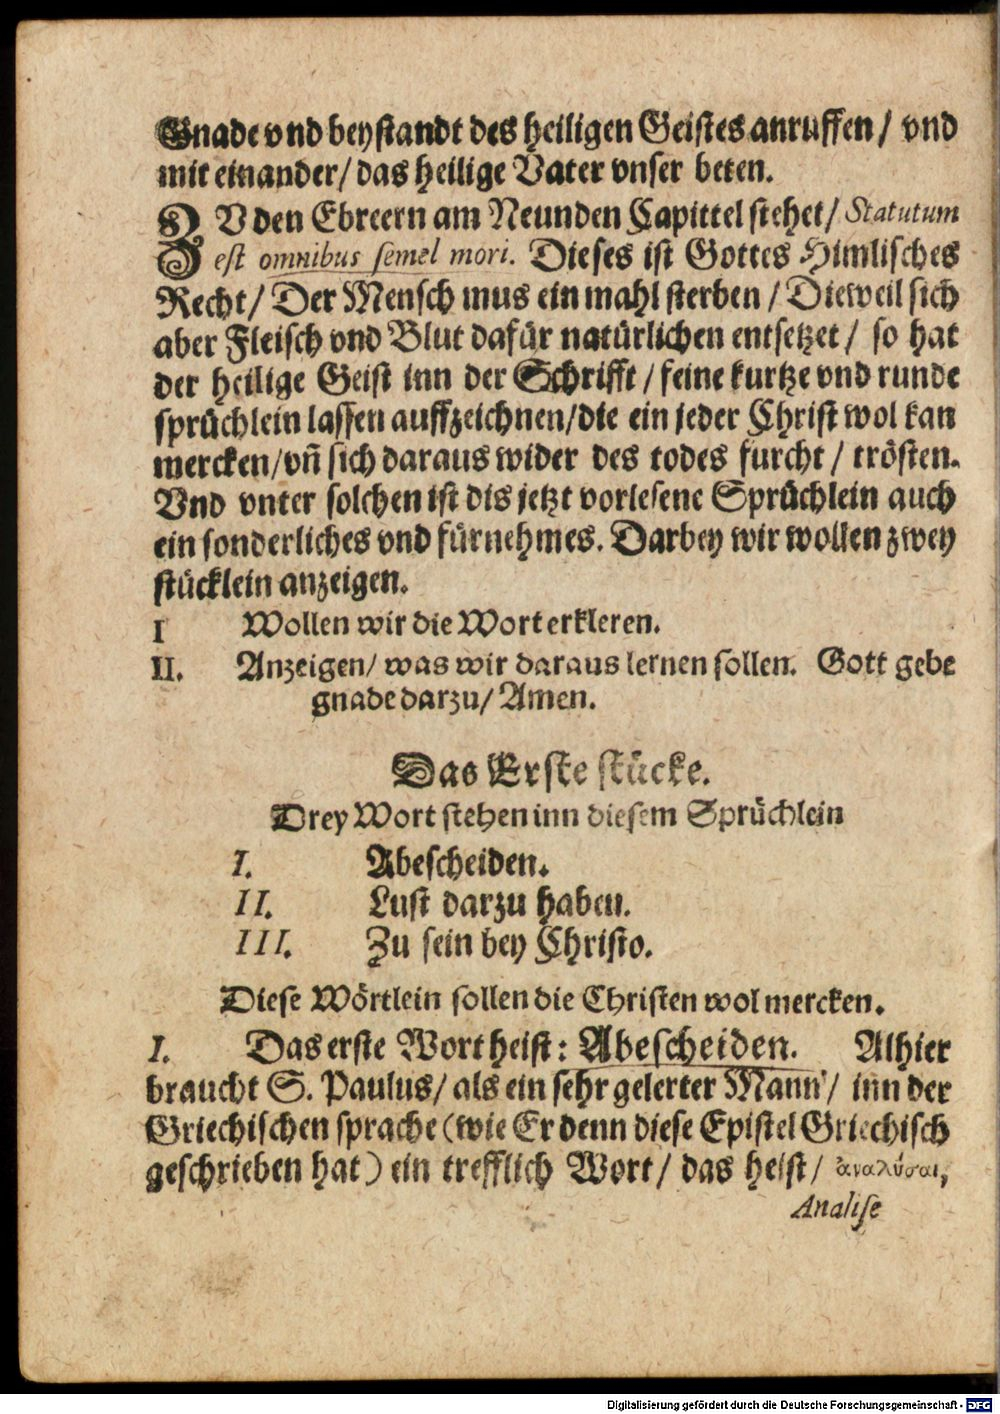 Gnade vnd beystandt des heiligen Geistes anruffen / vnd
mit einander / das heilige Vater vnser beten.
ZV den Ebreern am Neunden Capittel stehet / Statutum
est omnibus semel mori. Dieses ist Gottes Himlisches
Recht / Der Mensch mus ein mahl sterben / Dieweil sich
aber Fleisch vnd Blut dafür natürlichen entsetzet / so hat
der heilige Geist inn der Schrifft / feine kurtze vnd runde
sprüchlein lassen auffzeichnen / die ein jeder Christ wol kan
mercken / vñ sich daraus wider des todes furcht / trösten.
Vnd vnter solchen ist dis jetzt vorlesene Sprüchlein auch
ein sonderliches vnd fürnehmes. Darbey wir wollen zwey
stücklein anzeigen.
I Wollen wir die Wort erkleren.
II. Anzeigen / was wir daraus lernen sollen. Gott gebe
gnade darzu / Amen.
Das Erste stücke.
Drey Wort stehen inn diesem Sprüchlein
I. Abescheiden.
II. Lust darzu haben.
III. Zu sein bey Christo.
Diese Wörtlein sollen die Christen wol mercken.
I. Das erste Wort heist: Abescheiden. Alhier
braucht S. Paulus / als ein sehr gelerter Mann / inn der
Griechischen sprache (wie Er denn diese Epistel Griechisch
geschrieben hat) ein trefflich Wort / das heist / ἀναλύσαι,
Analise
Digitalisierung gefördert durch die Deutsche Forschungsgemeinschaft - DFG